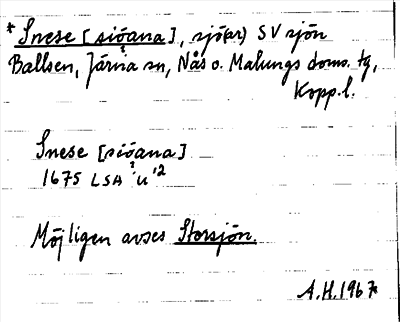 * Snese [sióana], sjö(ar) SV sjön
Ballsen, Järna sn, Nås o. Malungs doms. tg,
Kopp. l.
Snese [sióana]
1675 LSA U 12
Möjligen avses Storsjön.
A.H. 1967